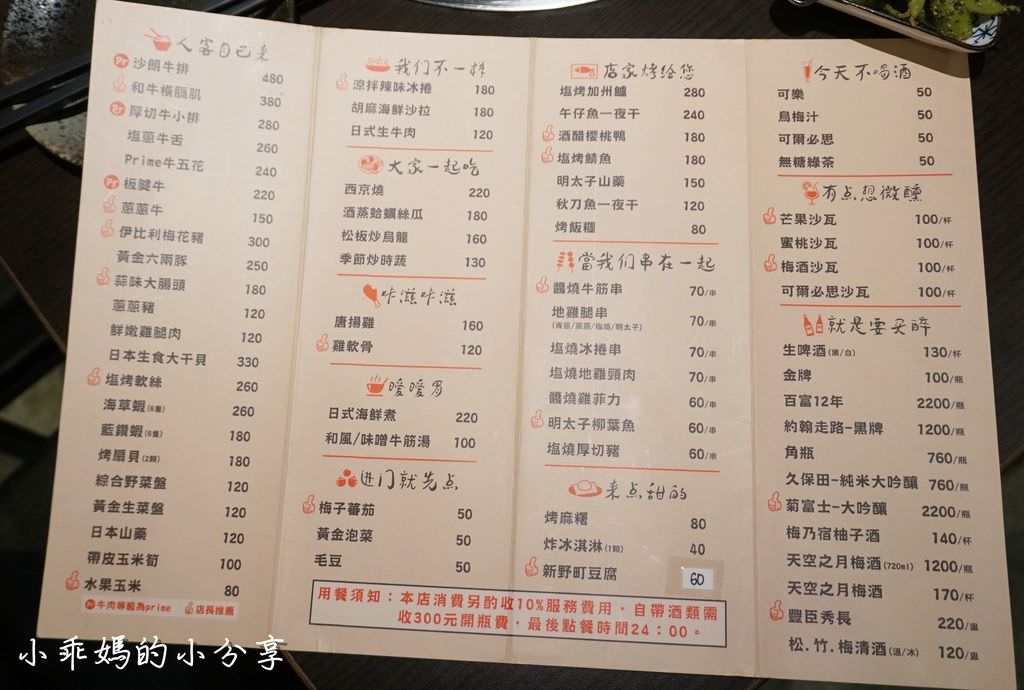 人客自己来
Pr 沙朗牛排 480
和牛橫膈肌 380
Pr 厚切牛小排 280
塩蔥牛舌 260
Prime牛五花 240
Pr 板腱牛 220
蔥蔥牛 150
伊比利梅花豬 300
黃金六兩豚 250
蒜味大腸頭 180
蔥蔥豬 120
鮮嫩雞腿肉 120
日本生食大干貝 330
塩烤軟絲 260
海草蝦(6隻) 260
藍鑽蝦(6隻) 180
烤扇貝(2顆) 180
綜合野菜盤 120
黃金生菜盤 120
日本山藥 120
帶皮玉米筍 100
水果玉米 80
Pr 牛肉等級為prime 店長推薦
我们不一样
涼拌辣味冰捲 180
胡麻海鮮沙拉 180
日式生牛肉 120
大家一起吃
西京燒 220
酒蒸蛤蠣絲瓜 180
松板炒烏龍 160
季節炒時蔬 130
咔滋咔滋
唐揚雞 160
雞軟骨 120
暖暖胃
日式海鮮煮 220
和風/味噌牛筋湯 100
进门就先点
梅子蕃茄 50
黃金泡菜 50
毛豆 50
店家烤給您
塩烤加州鱸 280
午仔魚一夜干 240
酒醋櫻桃鴨 180
塩烤鯖魚 180
明太子山藥 150
秋刀魚一夜干 120
烤飯糰 80
當我们串在一起
醬燒牛筋串 70/串
地雞腿串 70/串
(青蔥/蔥蔥/塩燒/明太子)
塩燒冰捲串 70/串
塩燒地雞頸肉 70/串
醬燒雞菲力 60/串
明太子柳葉魚 60/串
塩燒厚切豬 60/串
来点甜的
烤麻糬 80
炸冰淇淋(1顆) 40
新野町豆腐 60
用餐須知：本店消費另酌收10%服務費用，自帶酒類需
收300元開瓶費，最後點餐時間24：00。
今天不喝酒
可樂 50
烏梅汁 50
可爾必思 50
無糖綠茶 50
有点想微醺
芒果沙瓦 100/杯
蜜桃沙瓦 100/杯
梅酒沙瓦 100/杯
可爾必思沙瓦 100/杯
就是要买醉
生啤酒(黑/白) 130/杯
金牌 100/瓶
百富12年 2200/瓶
約翰走路-黑牌 1200/瓶
角瓶 760/瓶
久保田-純米大吟釀 760/瓶
菊富士-大吟釀 2200/瓶
梅乃宿柚子酒 140/杯
天空之月梅酒(720ml) 1200/瓶
天空之月梅酒 170/杯
豐臣秀長 220/盅
松.竹.梅清酒(溫/冰) 120/盅
小乖媽的小分享